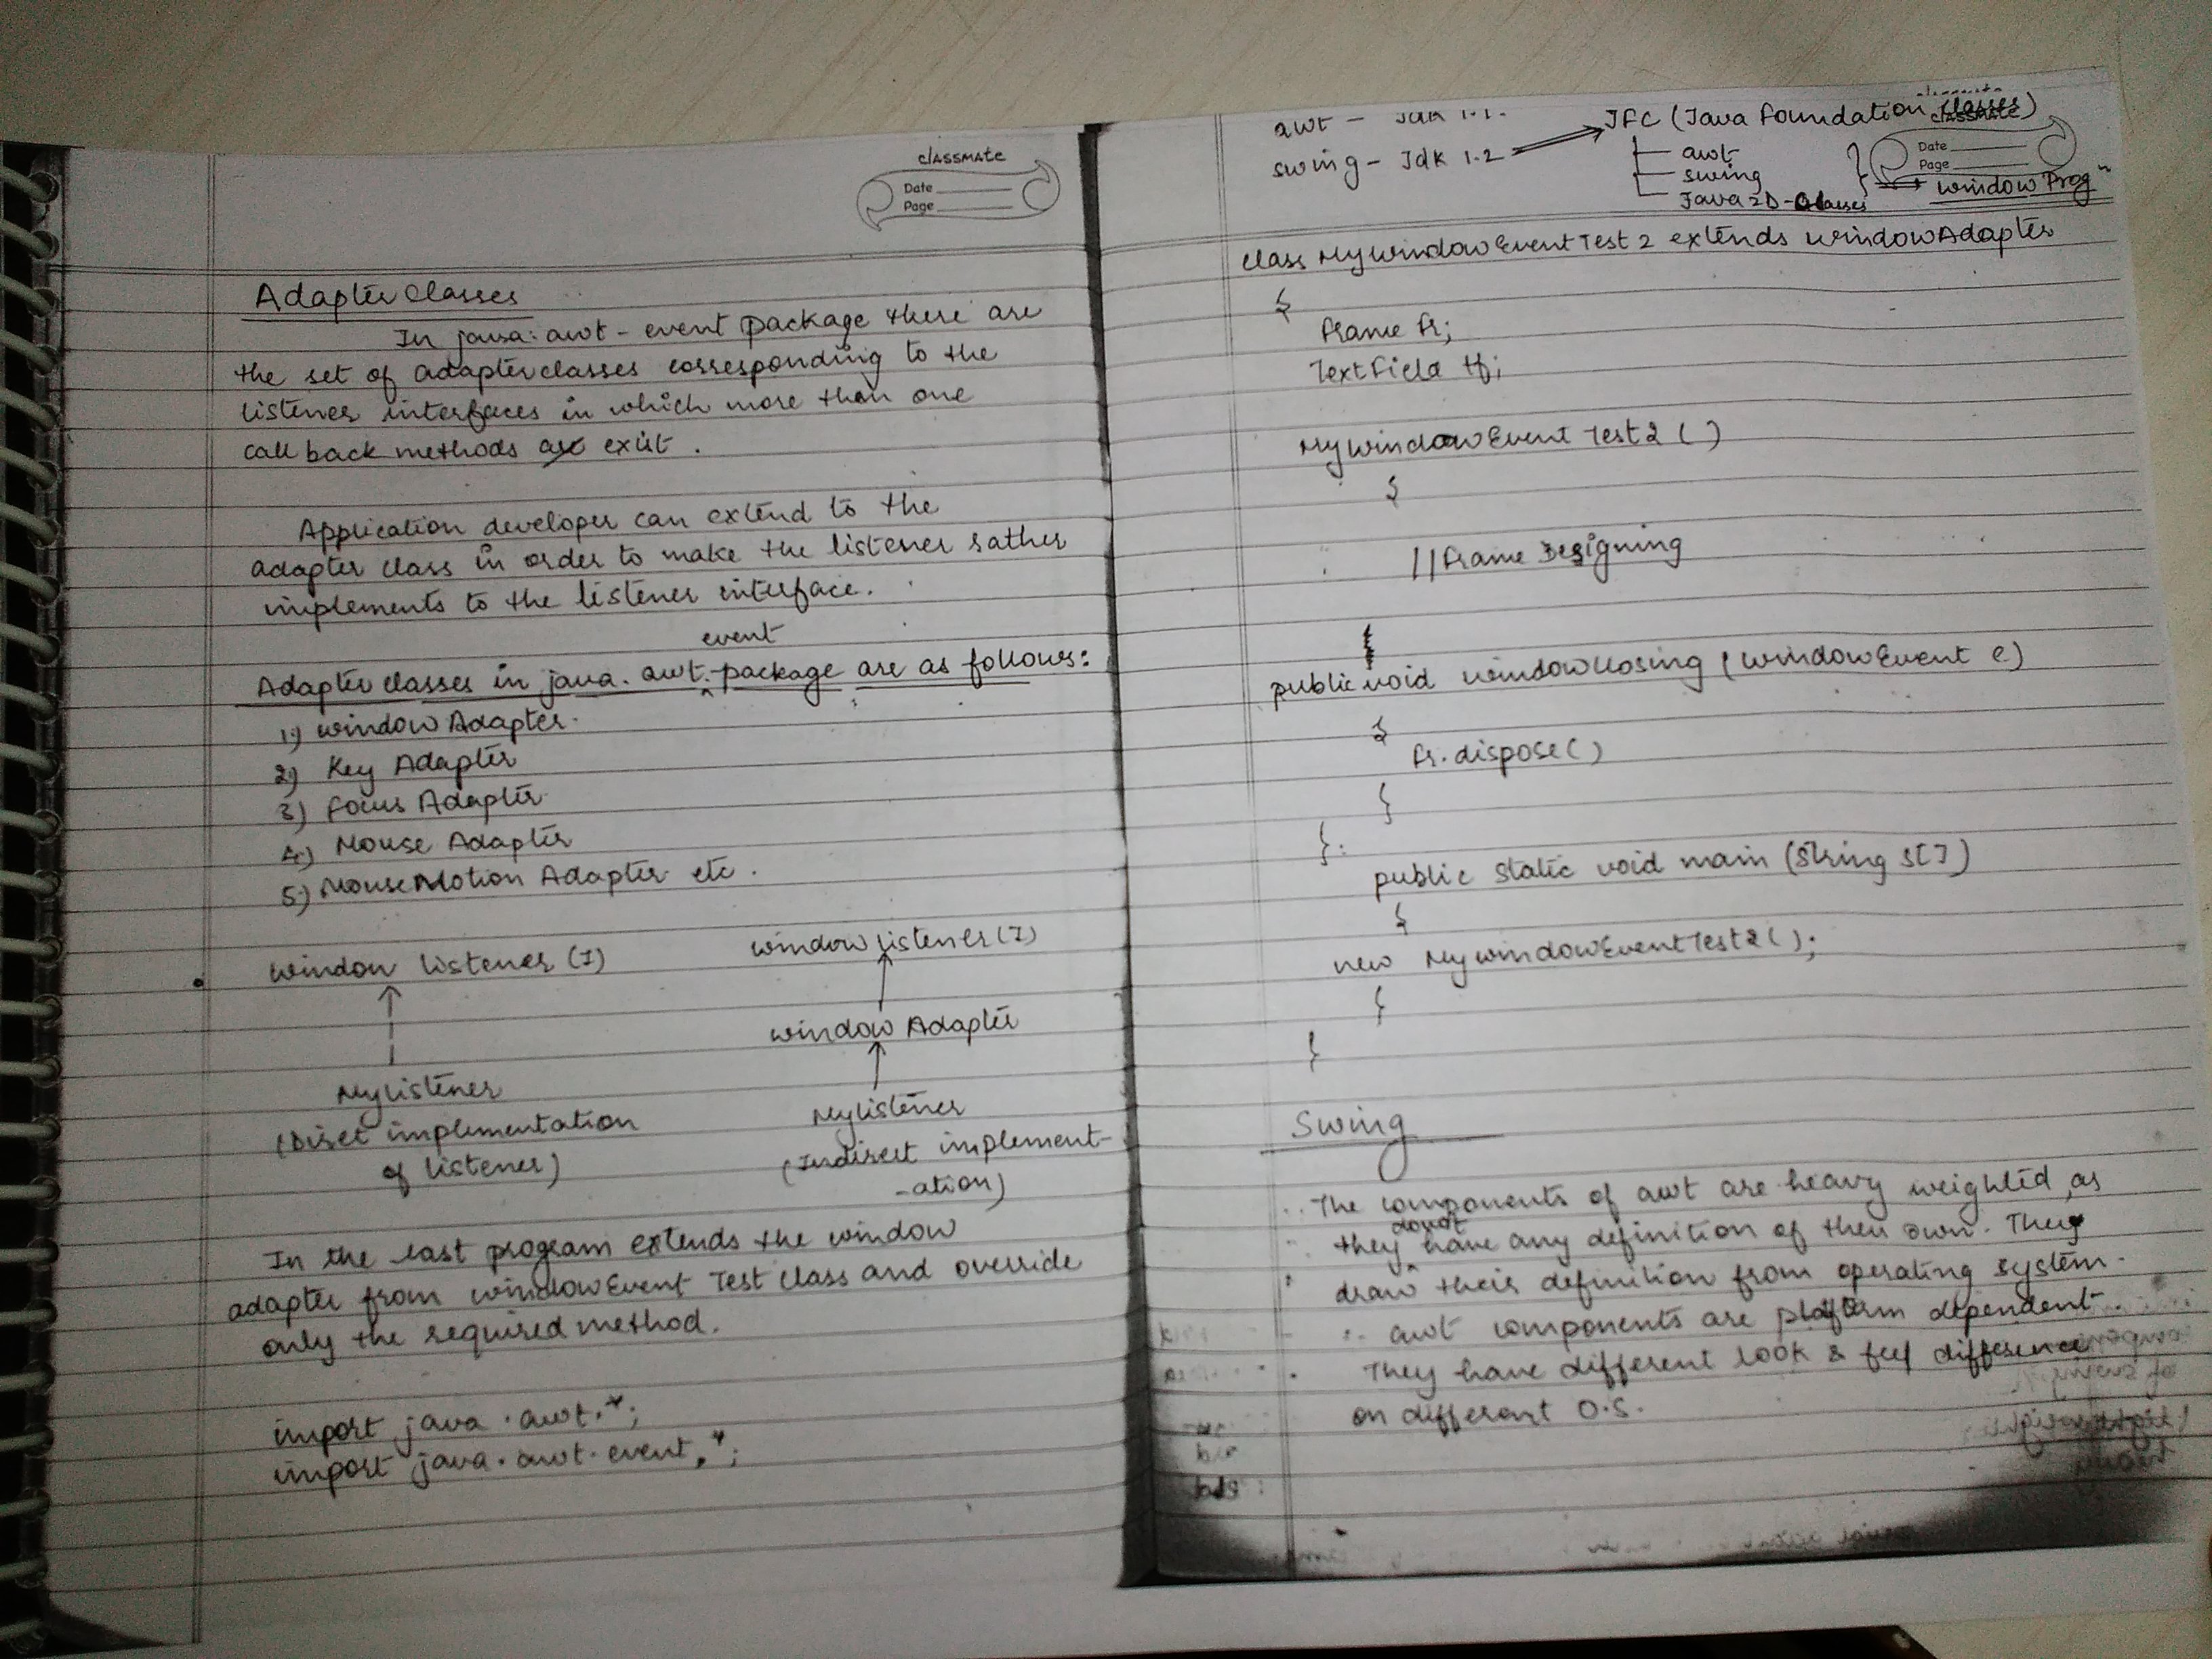 classmate
Date
Page
Adapter Classes
In java.awt-event package there are
the set of adapter classes corresponding to the
listener interfaces in which more than one
call back methods are exist.
Application developer can extend to the
adapter class in order to make the listener rather
implements to the listener interface.
event
Adapter classes in java.awt.package are as follows:
1) Window Adapter.
2) Key Adapter
3) Focus Adapter
4) Mouse Adapter
5) MouseMotion Adapter etc.
Window listener (I)
MyListener
(Direct implementation
of listener)
window listener (I)
window Adapter
MyListener
(Indirect implement-
-ation)
In the last program extends the window
adapter from windowEvent Test class and override
only the required method.
import java.awt.*;
import java.awt.event.*;
awt - Jdk 1.1.
swing - Jdk 1.2
JFC (Java Foundation Classes)
awt
swing
Java 2D-Classes
classmate
Date
Page
window Prog
class MyWindowEventTest2 extends windowAdapter
{
Frame fr;
TextField tf;
MyWindowEventTest2 ( )
{
//Frame Designing
}
public void windowClosing (WindowEvent e)
{
fr.dispose( )
}
}
public static void main (String s[])
{
new MyWindowEventTest2 ( );
}
}
Swing
The components of awt are heavy weighted, as
donot
they have any definition of their own. They
draw their definition from operating system.
∴ awt components are platform dependent.
They have different look & feel difference
on different O.S.